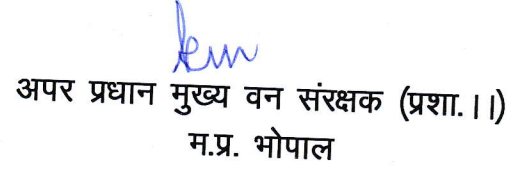 अपर प्रधान मुख्य वन संरक्षक (प्रशा.।।)
म.प्र. भोपाल